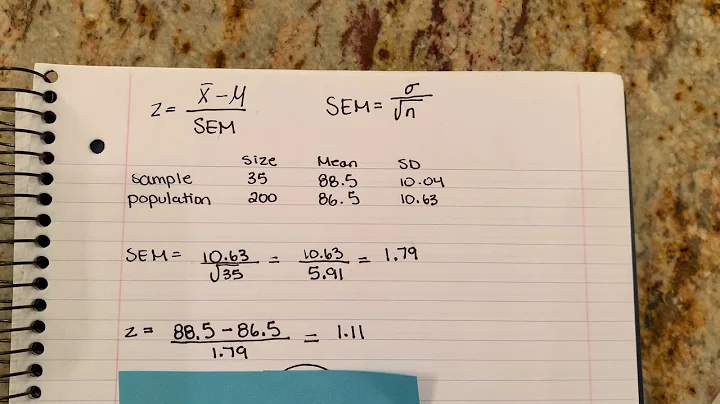 z = x̄ - μ / SEM    SEM = σ / √n
Size Mean SD
sample 35 88.5 10.04
population 200 86.5 10.63
SEM = 10.63 / √35 = 10.63 / 5.91 = 1.79
z = 88.5 - 86.5 / 1.79 = 1.11